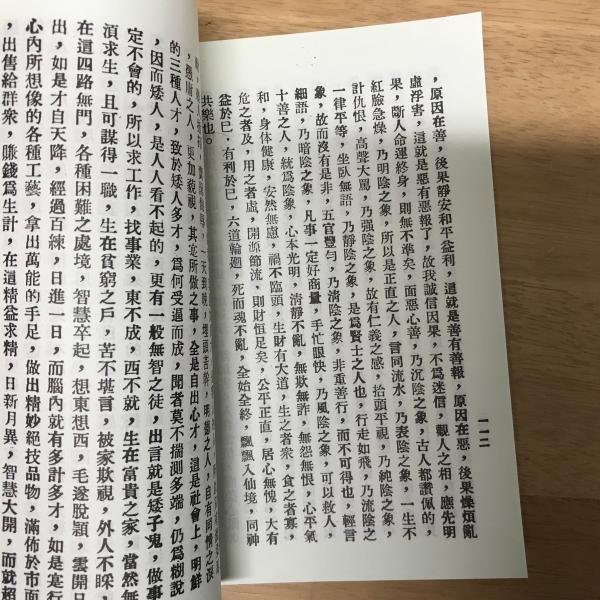 一一二
，原因在善，後果靜安和平益利，這就是善有善報，原因在惡，後果燥煩亂
虛浮害，這就是惡有惡報了，故我誠信因果，不爲迷信，觀人之相，應先明
果，斷人命運終身，則無不準矣，而惡心善，乃沉陰之象，古人都讚佩的，
紅臉急燥，乃明陰之象，所以是正直之人，言同流水，乃表陰之象，一生不
計仇恨，高聲大罵，乃强陰之象，故有仁義之感，抬頭平視，乃純陰之象，
一律平等，坐臥無語，乃靜陰之象，是爲賢士之人也，行走如飛，乃流陰之
象，故而沒有是非，五官豐勻，乃清陰之象，非重善行，而不可得也，輕言
細語，乃暗陰之象，凡事一定好商量，手忙眼快，乃風陰之象，可以救人，
十善之人，統爲陰象，心本光明，清靜不亂，無欺無詐，無怨無恨，心平氣
和，身体健康，安然無慮，福不臨頭，生財有大道，生之者衆，食之者寡，
危之者及，用之者虛，開源節流，則財恒足矣，公平正直，居心無愧，大有
益於巳，有利於巳，六道輪廻，死而魂不亂，全始全終，飄飄入仙境，同神
共樂也。
，愚庸之人，更加藐視，其定所做之事，全是自出心才，這是社會上，明鮮
的三種人才，致於矮人多才，爲何受逼而成，閱者莫不揣測多端，仍爲糊說
，因而矮人，是人人看不起的，更有一般無智之徒，出言就是矮子鬼，做事
定不會的，所以求工作，找事業，東不成，西不就，生在富貴之家，當然無
須求生，且可謀得一職，生在貧窮之戶，苦不堪言，被家欺視，外人不睬，
在這四路無門，各種困難之處境，智慧卒起，想東想西，毛遂脫穎，雲開日
出，如是才自天降，經過百練，日進一日，而腦內就有多計多才，如是寔行
心內所想像的各種工藝，拿出萬能的手足，做出精妙絕技品物，滿佈於市面
，出售給群衆，賺錢爲生計，在這精益求精，日新月異，智慧大開，而就超